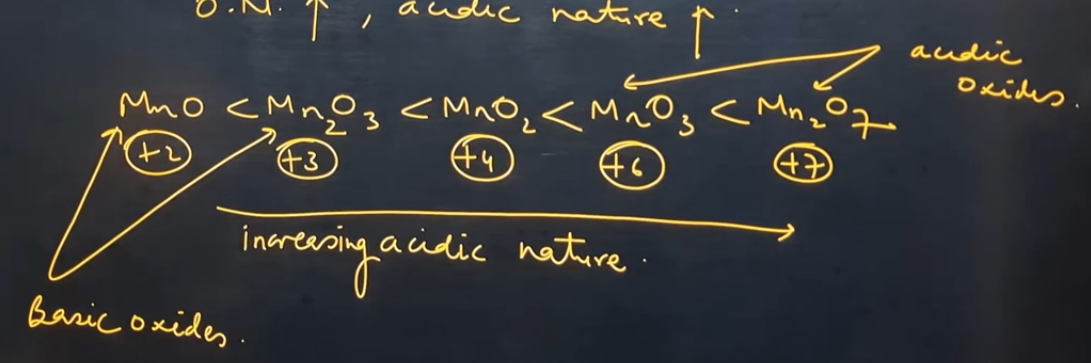 O.N. ↑, acidic nature ↑
acidic oxides.
MnO < Mn₂O₃ < MnO₂ < MnO₃ < Mn₂O₇
+2 +3 +4 +6 +7
increasing acidic nature.
Basic oxides.